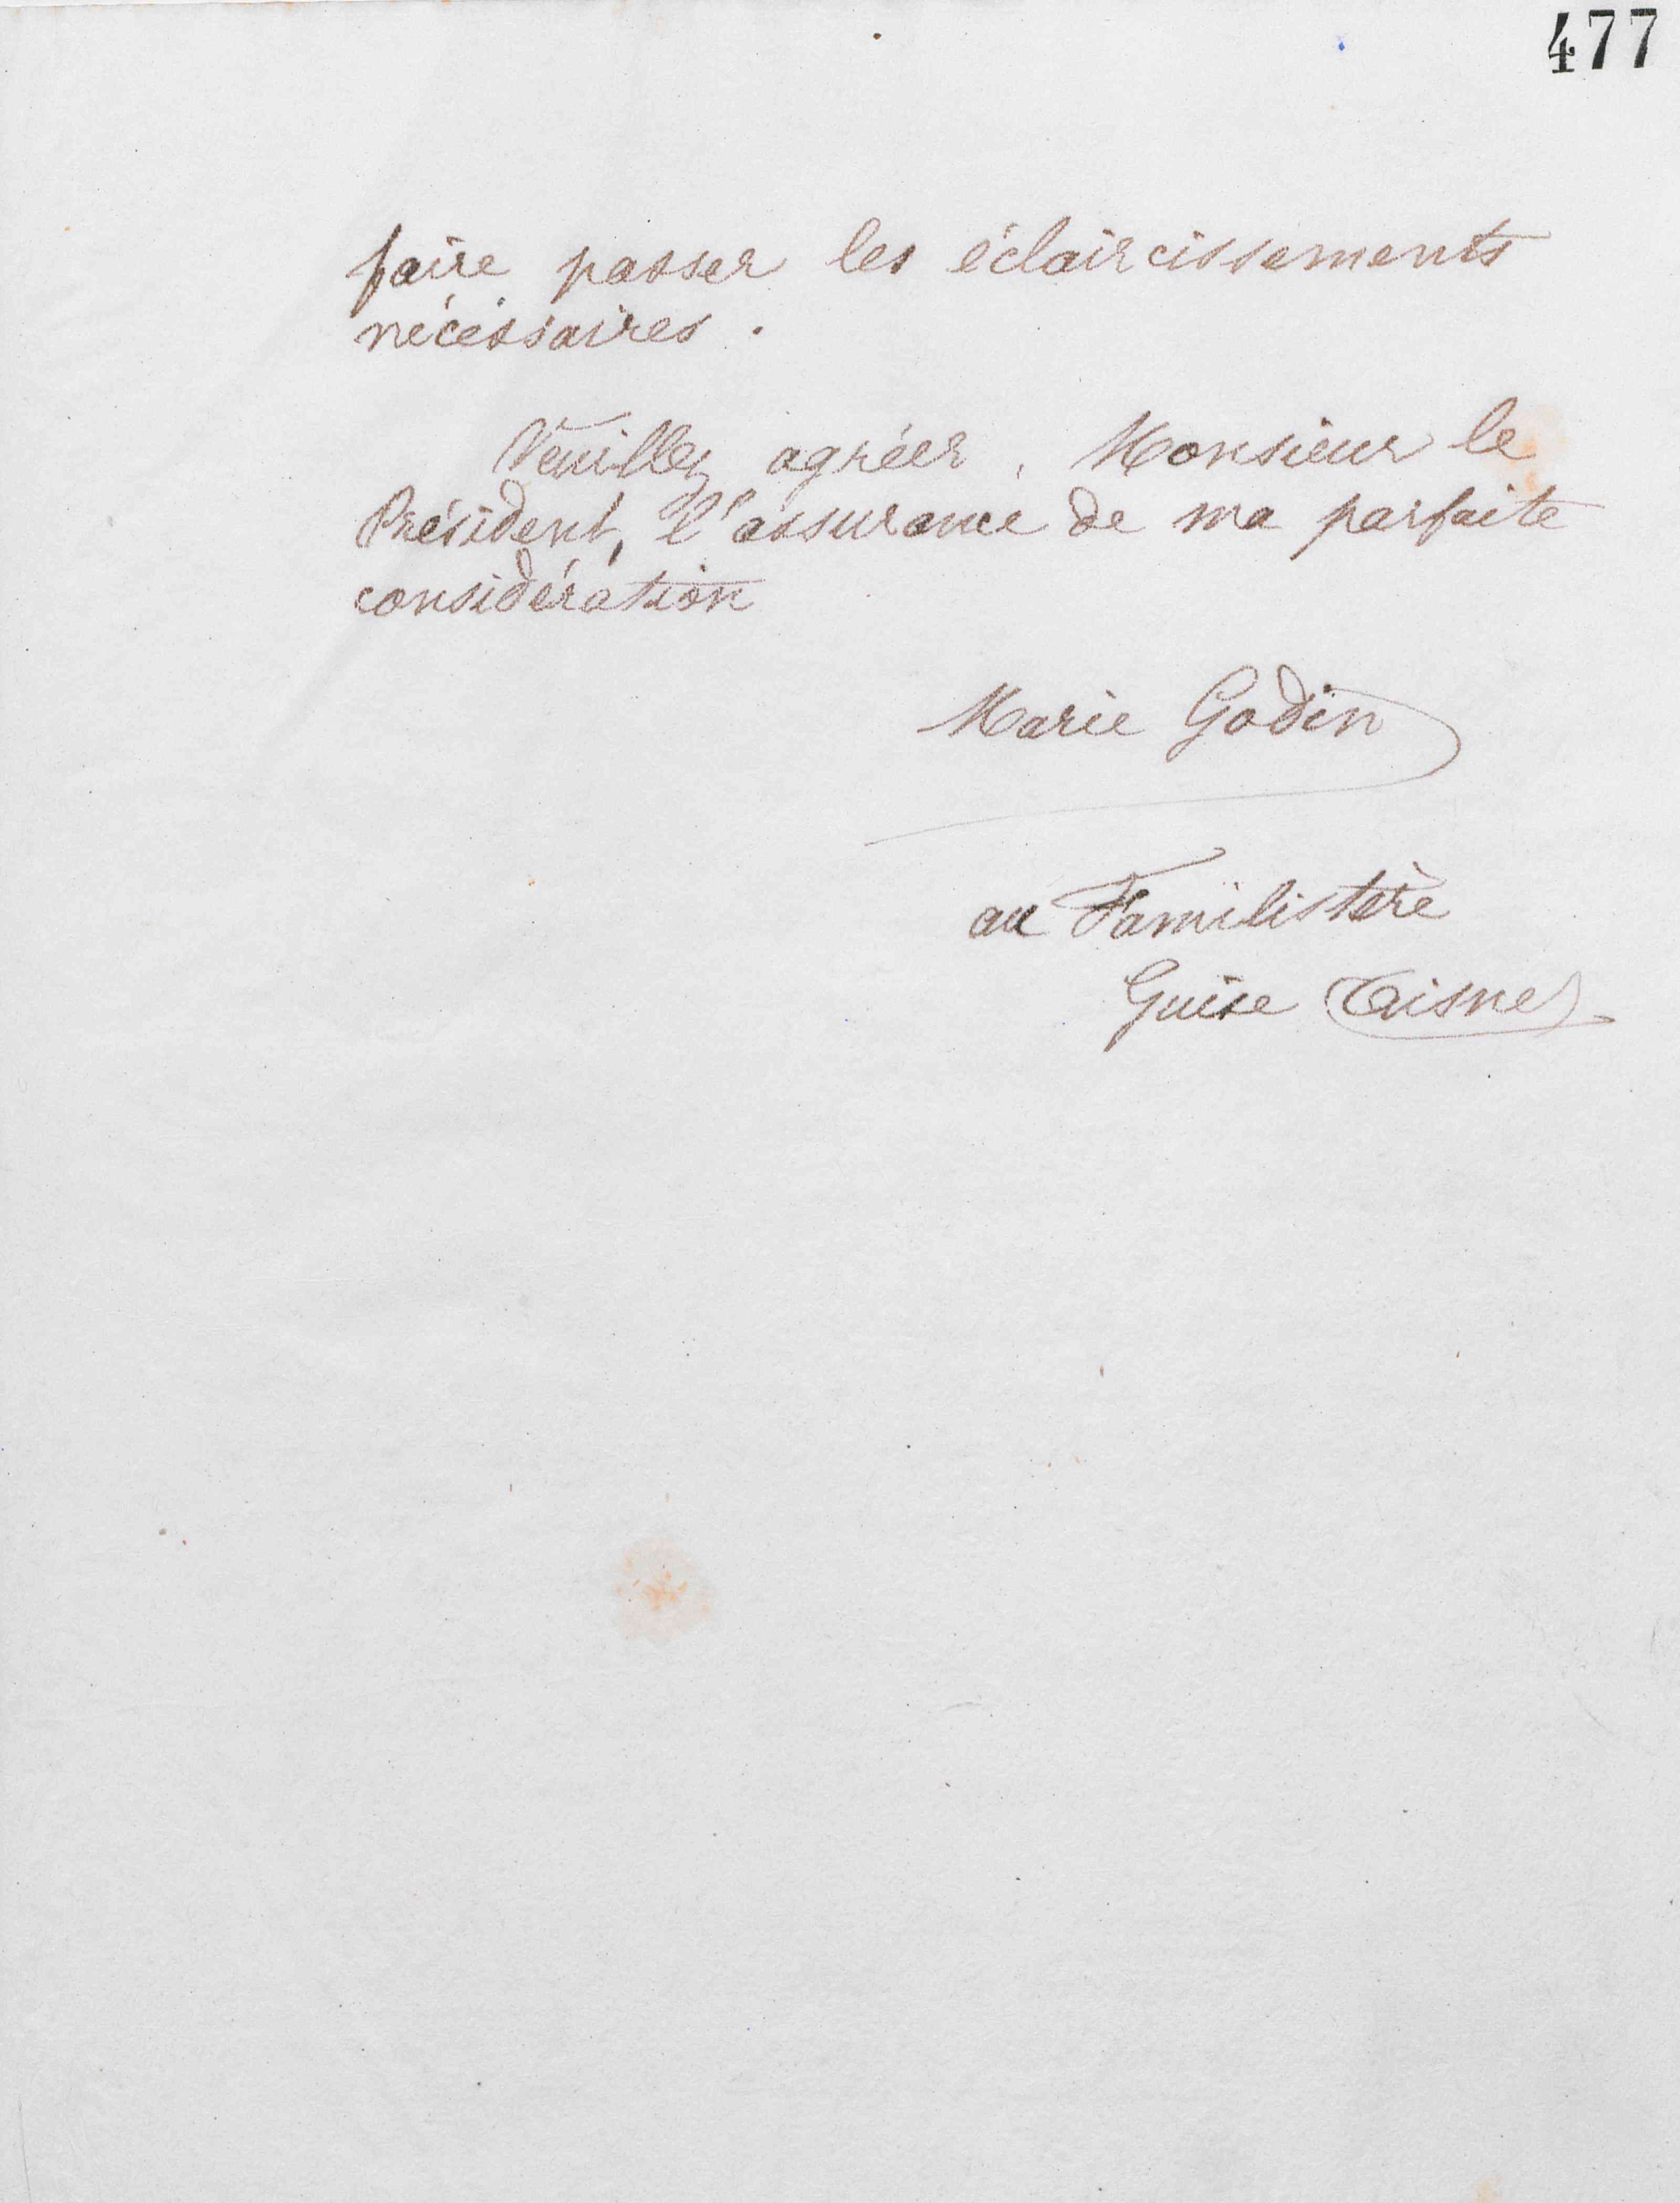 477
faire passer les éclaircissements
nécessaires.
Veuillez agréer, Monsieur le
Président, l'assurance de ma parfaite
considération
Marie Godin
au Familistère
Guise (Aisne)